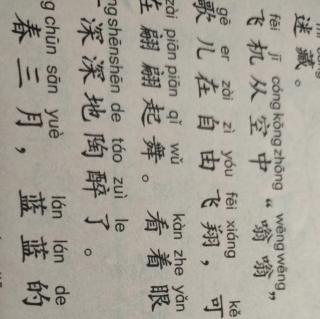 迷藏。
fēi jī cóng kōng zhōng wēng wēng
飞机从空中“嗡嗡”
gē er zài zì yóu fēi xiáng kě
歌儿在自由飞翔，可
zài piān piān qǐ wǔ kàn zhe yǎn
在翩翩起舞。看着眼
shēn shēn de táo zuì le
深深地陶醉了。
chūn sān yuè lán lán de
春三月，蓝蓝的